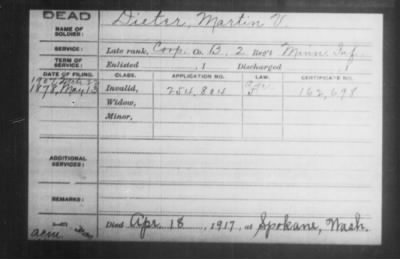 DEAD
NAME OF SOLDIER: Dieter, Martin V.
SERVICE: Late rank, Corp. Co. B. 2 Reg't Minn. Inf.
TERM OF SERVICE: Enlisted , 1 Discharged
DATE OF FILING. CLASS. APPLICATION NO. LAW. CERTIFICATE NO.
1907,
1878, May 13 Invalid, 254,804 162,698
Widow,
Minor,
ADDITIONAL SERVICES:
REMARKS:
Died Apr. 18, 1917, at Spokane, Wash.